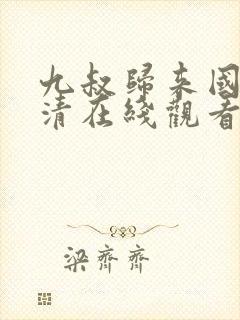 九叔歸来國
清在线觀看
梁齊齊